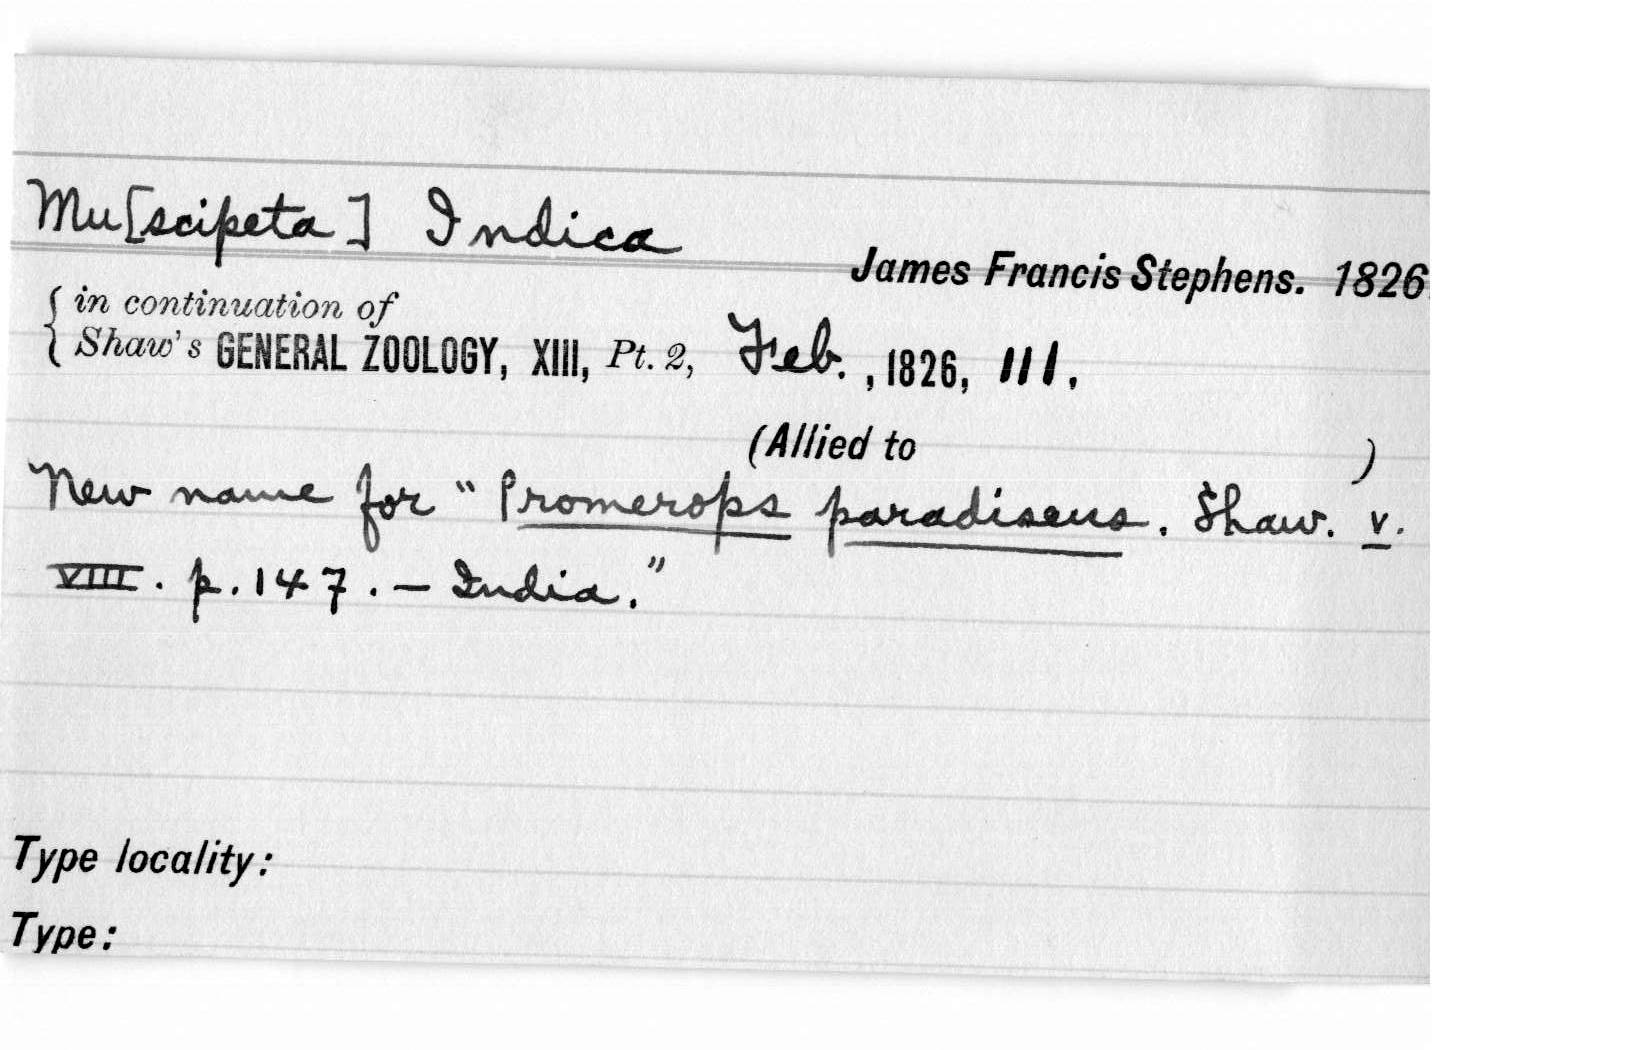 Mu[scipeta] Indica
James Francis Stephens. 1826
in continuation of
Shaw's GENERAL ZOOLOGY, XIII, Pt. 2, Feb., 1826, 111.
(Allied to )
New name for "Promerops paradiseus. Shaw. v.
VIII. p. 147. — India."
Type locality:
Type: